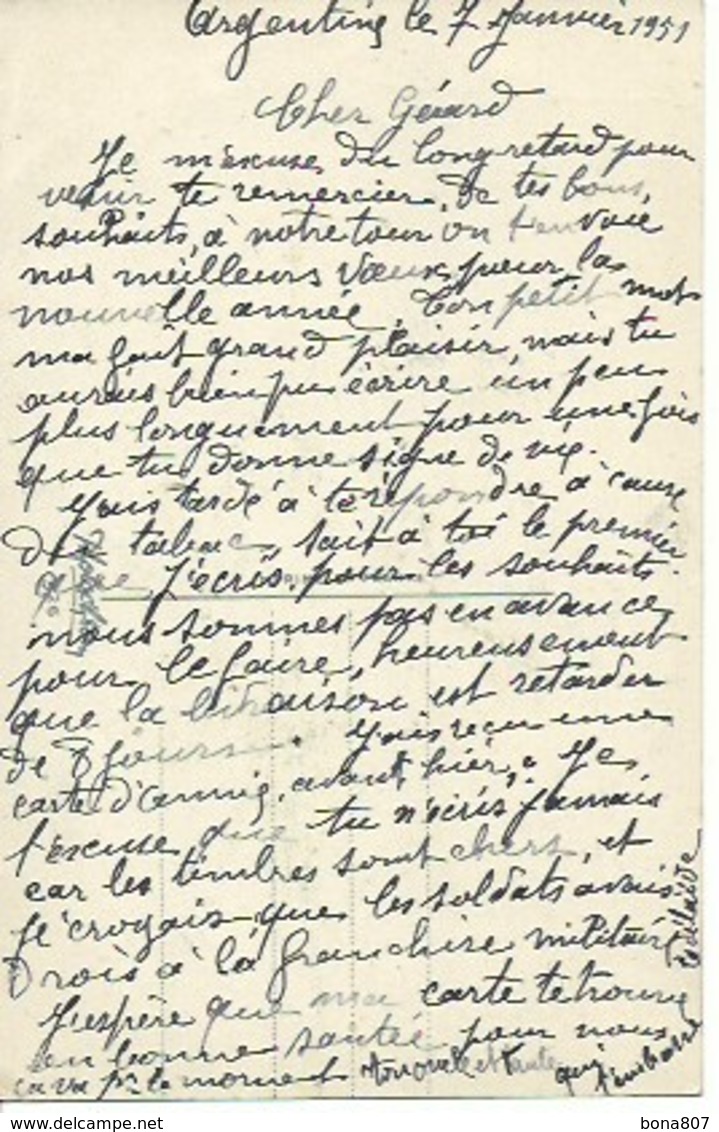 Argentine le 7 Janvier 1951
Cher Gérard
Je m'excuse du long retard pour
venir te remercier, de tes bons,
souhaits, à notre tour on t'envoie
nos meilleurs vœux pour la
nouvelle année, Ton petit mot
ma fait grand plaisir, mais tu
aurais bien pu écrire un peu
plus longuement pour une fois
que tu donne signe de vie.
J'ais tardé à te répondre à cause
du tabac, sait à toi le premier
que J'écris, pour les souhaits
nous sommes pas en avance,
pour le faire, heureusement
que la livraison est retarder
de 8 jours. J'ais reçu une
carte d'annie, avant hièr, Je
t'excuse que tu n'écris jamais
car les timbres sont chers, et
je croyais que les soldats avais
Drois à la franchise militaire
J'espère que ma carte te trouve
en bonne santée pour nous
ca va pr le moment ton oncle et tante
qui t'embrasse
bona807